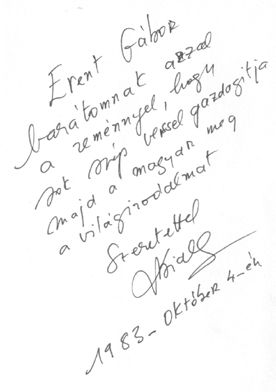 Erent Gábor
barátomnak azzal
a reménnyel, hogy
sok szép verssel gazdagitja
majd a magyar meg
a világirodalmat
Szeretettel
1983 - Október 4-én